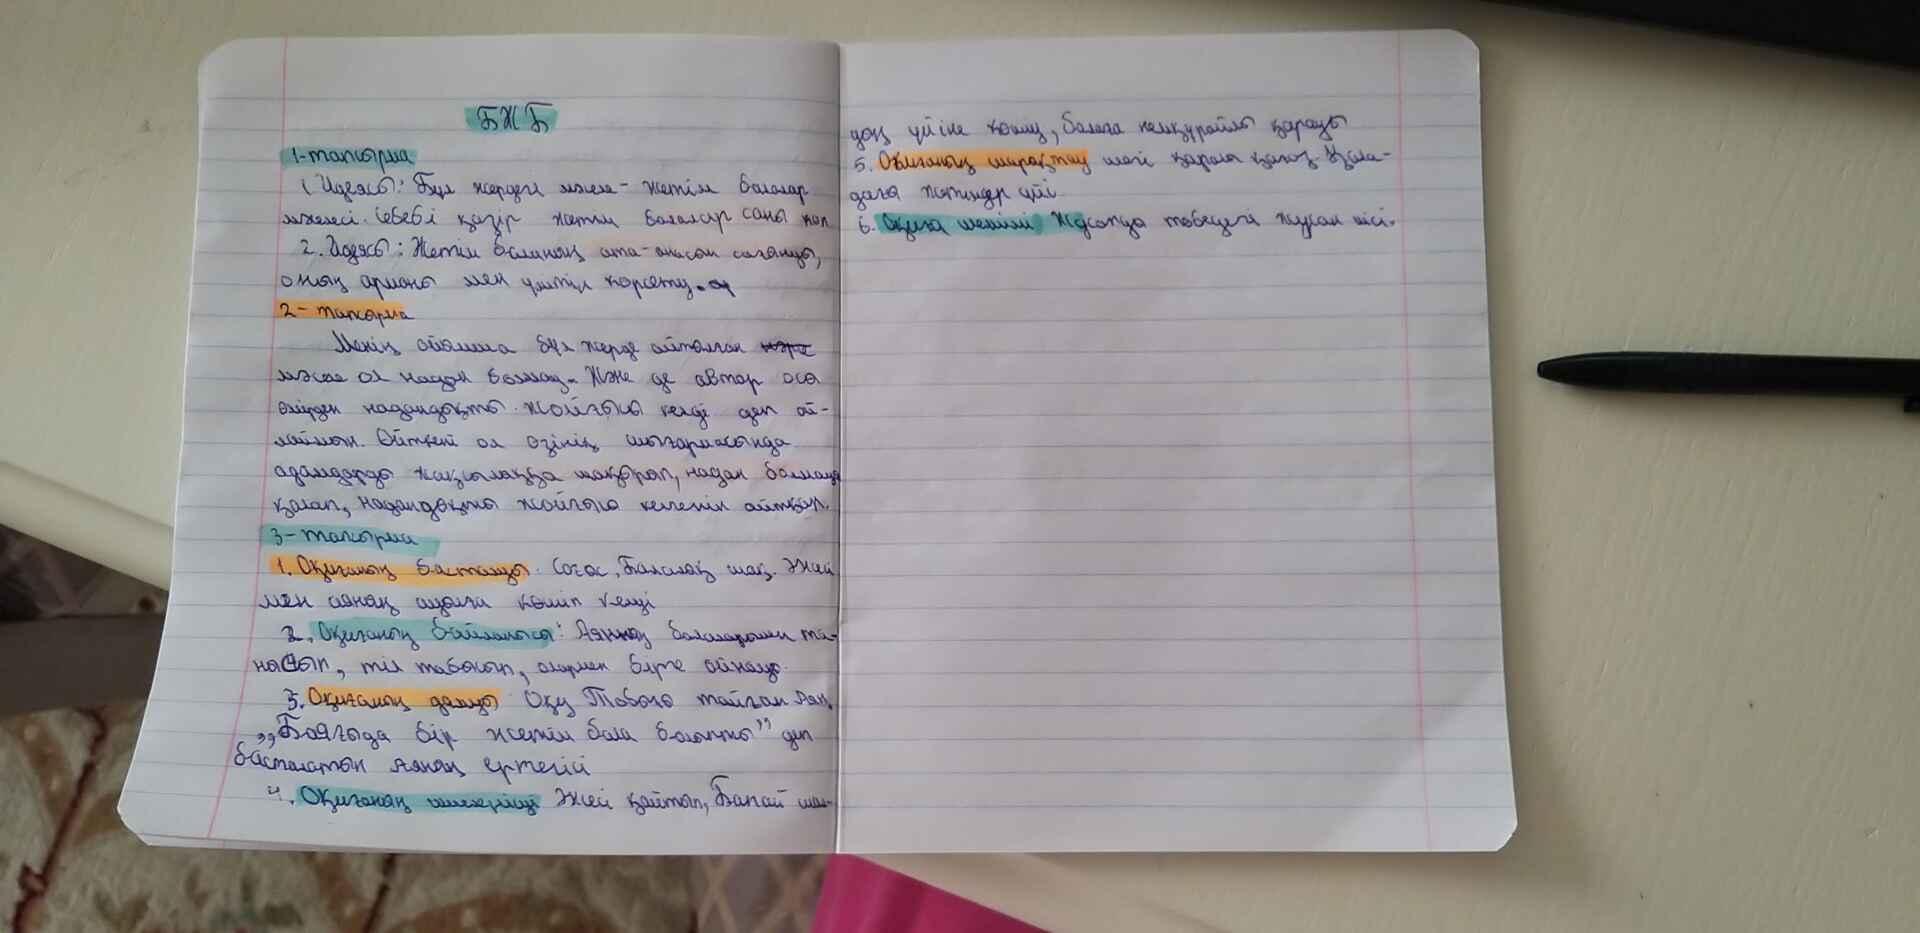 БЖБ
1-тапсырма
1 Идеясы: Бұл жердегі мәселе - жетім балалар
мәселесі. Себебі қазір жетім балалар саны көп
2. Идеясы: Жетім баланың ата-анасын сағынуы,
оның арманы мен үмітін көрсету.
2- тапсырма
Менің ойымша бұл жерде айтылған
мәселе ол надан болмау. Және де автор осы
өмірден надандықты жойғысы келді деп ой-
лаймын. Өйткені ол өзінің шығармасында
адамдарды жақсылыққа шақырып, надан болмауға
қалап, надандықты жойғысы келгенін айтқан.
3- тапсырма
1. Оқиғаның басталуы. Соғыс, Балалық шақ. Әжей
мен аянның ауылға көшіп келуі
2. Оқиғаның байланысы: Аянның балалармен та-
нысып, тіл табысып, олармен бірге ойнауы.
3. Оқиғаның дамуы Оқу Тобығы тайған Аян.
,,Баяғыда бір жетім бала болыпты" деп
басталатын Аянның ертегісі
4. Оқиғаның шиеленісуі Әжей қайтып, Бапай шал-
дың үйіне көшуі, балаға немқұрайлы қарауы
5. Оқиғаның шарықтау шегі қаралы қағаз. Қала-
дағы жетімдер үйі
6. Оқиға шешімі Жусанды төбедегі жусан иісі.